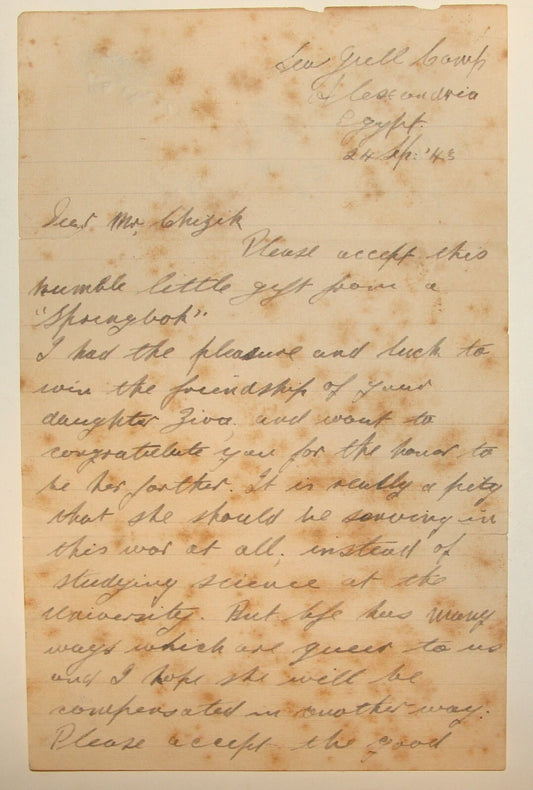 Camp
Alexandria
Egypt.
24 Sp. '43
Dear Mr. Chizik
Please accept this
humble little gift from a
"Springbok".
I had the pleasure and luck to
win the friendship of your
daughter Ziva, and want to
congratulate you for the honor to
be her farther. It is really a pity
that she should be serving in
this war at all, instead of
studying science at the
University. But life has many
ways which are queer to us
and I hope she will be
compensated in another way.
Please accept the good